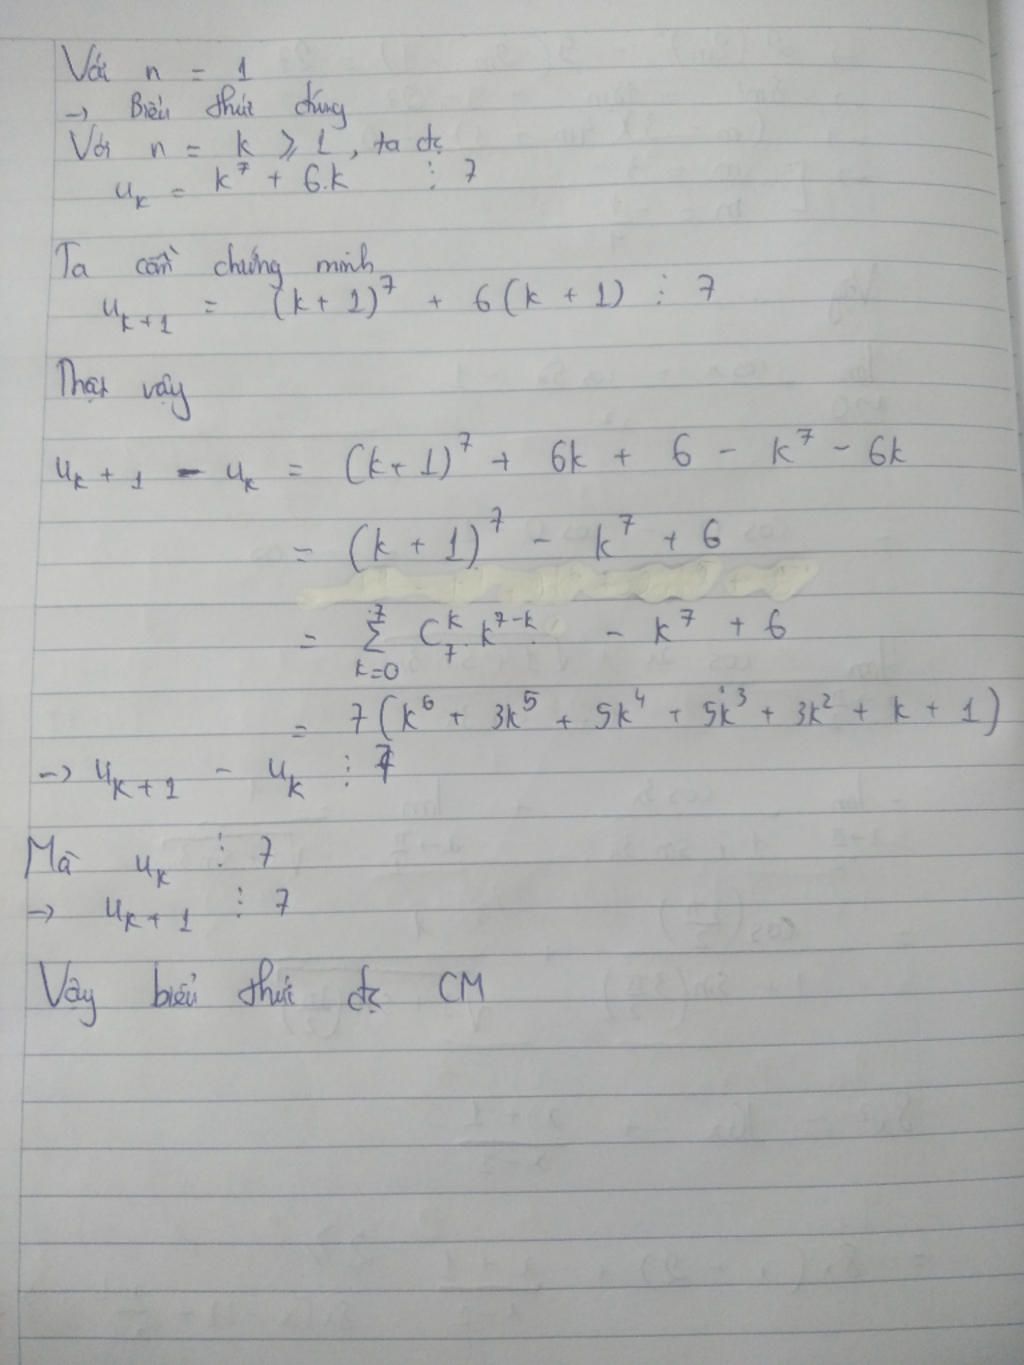 Với n = 1
→ Biểu thức đúng
Với n = k ⩾ 1, ta đc
u_k = k^7 + 6.k ⋮ 7
Ta cần chứng minh
u_{k+1} = (k+1)^7 + 6(k+1) ⋮ 7
Thật vậy
u_{k+1} - u_k = (k+1)^7 + 6k + 6 - k^7 - 6k
= (k+1)^7 - k^7 + 6
= \sum_{k=0}^{7} C_7^k.k^{7-k} - k^7 + 6
= 7(k^6 + 3k^5 + 5k^4 + 5k^3 + 3k^2 + k + 1)
→ u_{k+1} - u_k ⋮ 7
Mà u_k ⋮ 7
→ u_{k+1} ⋮ 7
Vậy biểu thức đc CM